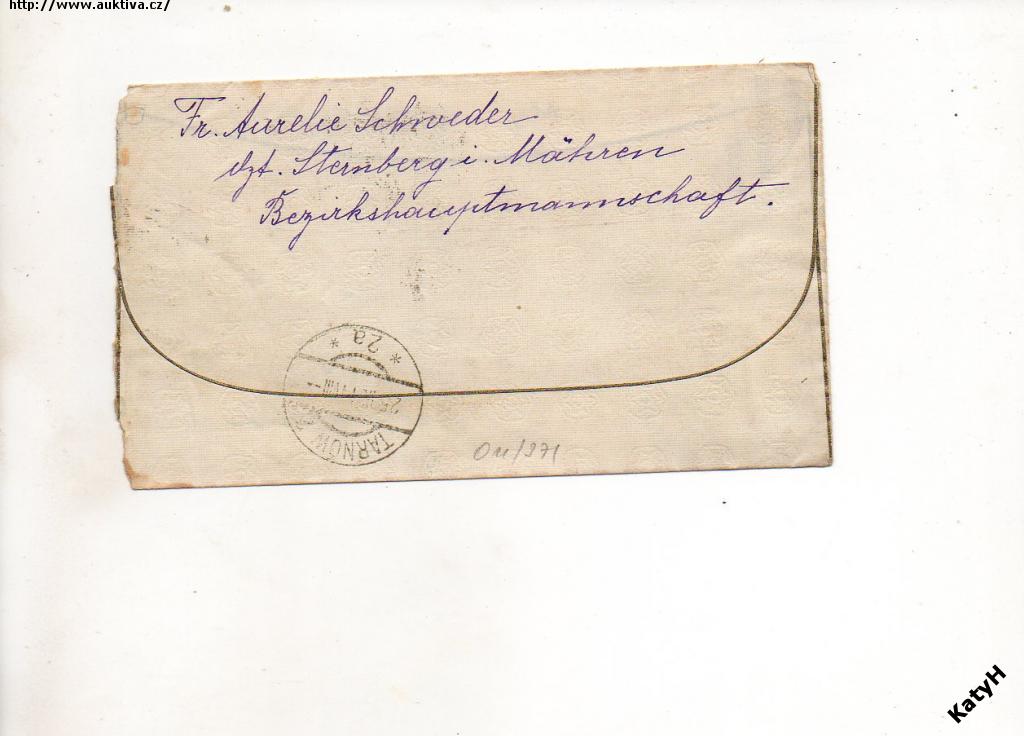 http://www.auktiva.cz/
Fr. Aurelie Schweder
dzt. Sternberg i. Mähren
Bezirkshauptmannschaft.
* 2a *
TARNÓW
KatyH